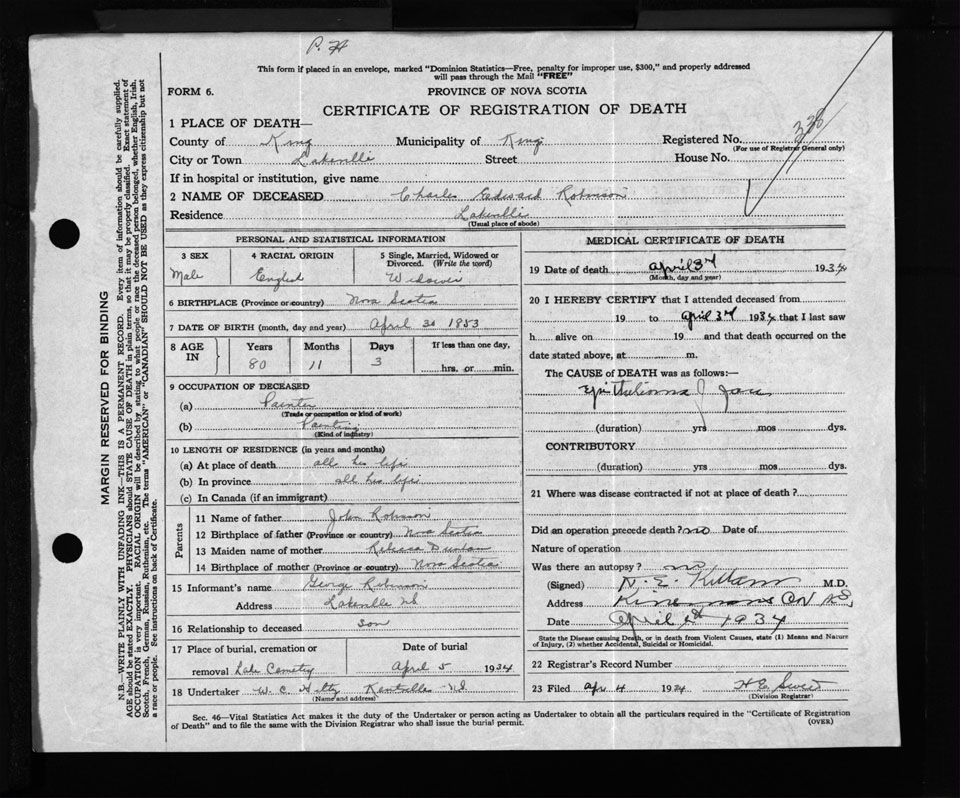 P. H
This form if placed in an envelope, marked "Dominion Statistics—Free, penalty for improper use, $300," and properly addressed
will pass through the Mail "FREE"
FORM 6.
PROVINCE OF NOVA SCOTIA
CERTIFICATE OF REGISTRATION OF DEATH
1 PLACE OF DEATH—
County of Kings Municipality of Kings Registered No. 338
(For use of Registrar General only)
City or Town Lakeville Street House No.
If in hospital or institution, give name
2 NAME OF DECEASED Charles Edward Robinson
Residence Lakeville
(Usual place of abode)
PERSONAL AND STATISTICAL INFORMATION
3 SEX 4 RACIAL ORIGIN 5 Single, Married, Widowed or Divorced. (Write the word)
Male English Widower
6 BIRTHPLACE (Province or country) Nova Scotia
7 DATE OF BIRTH (month, day and year) April 30 1853
8 AGE IN Years Months Days If less than one day,
80 11 3 hrs. or min.
9 OCCUPATION OF DECEASED
(a) Painter
(Trade or occupation or kind of work)
(b) Painting
(Kind of industry)
10 LENGTH OF RESIDENCE (in years and months)
(a) At place of death all his life
(b) In province all his life
(c) In Canada (if an immigrant)
Parents
11 Name of father John Robinson
12 Birthplace of father (Province or country) Nova Scotia
13 Maiden name of mother Rebecca
14 Birthplace of mother (Province or country) Nova Scotia
15 Informant's name George Robinson
Address Lakeville NS
16 Relationship to deceased son
17 Place of burial, cremation or removal Date of burial
Lake Cemetry April 5 1934
18 Undertaker W. C. Hiltz Kentville NS
(Name and address)
MEDICAL CERTIFICATE OF DEATH
19 Date of death April 3rd 1934
(Month, day and year)
20 I HEREBY CERTIFY that I attended deceased from
19 to April 3rd 1934 that I last saw
h alive on 19 and that death occurred on the
date stated above, at m.
The CAUSE of DEATH was as follows:—
Epithelioma of Jaw
(duration) yrs mos dys.
CONTRIBUTORY
(duration) yrs mos dys.
21 Where was disease contracted if not at place of death?
Did an operation precede death? no Date of
Nature of operation
Was there an autopsy? no
(Signed) N. E. M.D.
Address
Date April 1934
State the Disease causing Death, or in death from Violent Causes, state (1) Means and Nature
of Injury, (2) whether Accidental, Suicidal or Homicidal.
22 Registrar's Record Number
23 Filed Apr 4 1934 H E
(Division Registrar)
Sec. 46—Vital Statistics Act makes it the duty of the Undertaker or person acting as Undertaker to obtain all the particulars required in the "Certificate of Registration
of Death" and to file the same with the Division Registrar who shall issue the burial permit. (OVER)
MARGIN RESERVED FOR BINDING
N.B.—WRITE PLAINLY WITH UNFADING INK—THIS IS A PERMANENT RECORD. Every item of information should be carefully supplied.
AGE should be stated EXACTLY. PHYSICIANS should STATE CAUSE OF DEATH in plain terms, so that it may be properly classified. Exact statement of
OCCUPATION is very important. RACIAL ORIGIN will be described by stating to what people or race the deceased person belonged, whether English, Irish,
Scotch, French, German, Russian, Ruthenian, etc. The terms "AMERICAN" or "CANADIAN" SHOULD NOT BE USED as they express citizenship but not
a race or people. See instructions on back of Certificate.